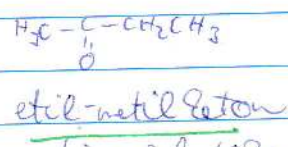 H3C - C - CH2CH3
||
O
etil-metil keton